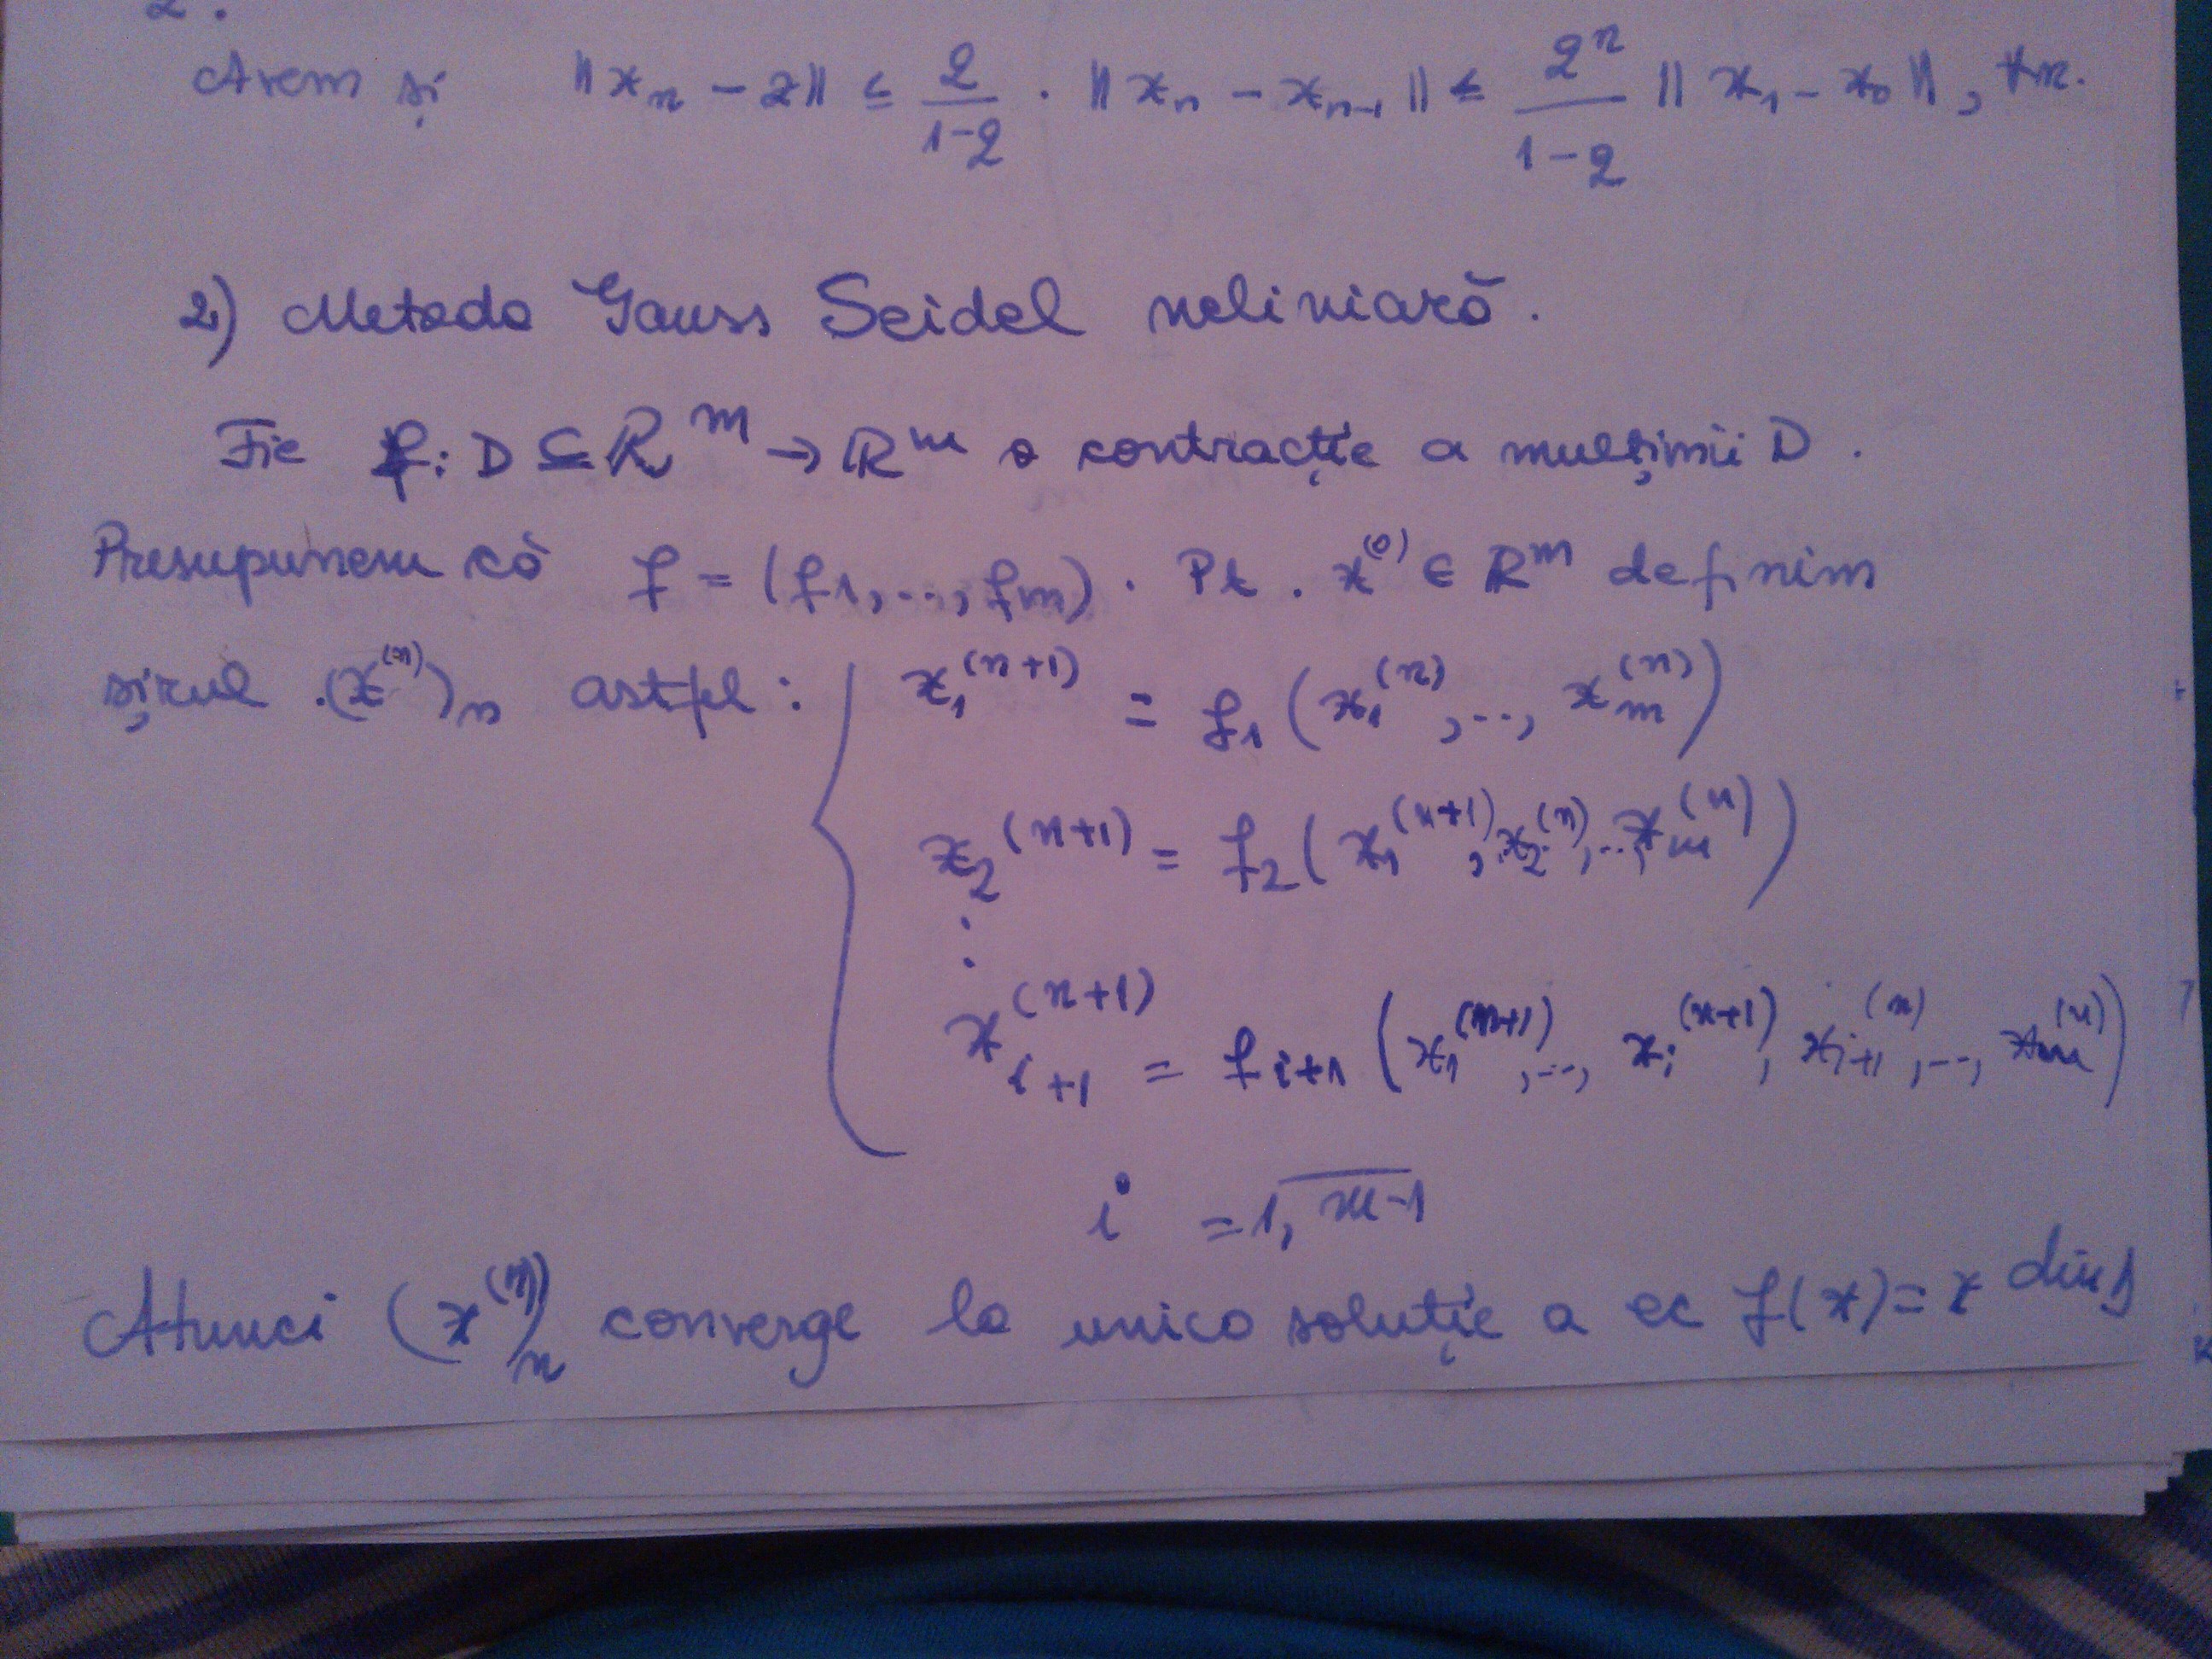 2.
Avem și ‖xₙ − z‖ ≤ q/(1−q) · ‖xₙ − xₙ₋₁‖ ≤ qⁿ/(1−q) ‖x₁ − x₀‖, ∀n.
2) Metoda Gauss Seidel neliniară.
Fie f: D ⊆ ℝᵐ → ℝᵐ o contracție a mulțimii D.
Presupunem că f = (f1,..., fm). Pt. x⁽⁰⁾ ∈ ℝᵐ definim
șirul (x⁽ⁿ⁾)ₙ astfel: { x₁⁽ⁿ⁺¹⁾ = f₁(x₁⁽ⁿ⁾,..., xₘ⁽ⁿ⁾)
x₂⁽ⁿ⁺¹⁾ = f₂(x₁⁽ⁿ⁺¹⁾, x₂⁽ⁿ⁾,...,xₘ⁽ⁿ⁾)
⋮
xᵢ₊₁⁽ⁿ⁺¹⁾ = fᵢ₊₁(x₁⁽ⁿ⁺¹⁾,..., xᵢ⁽ⁿ⁺¹⁾, xᵢ₊₁⁽ⁿ⁾,..., xₘ⁽ⁿ⁾)
i = 1, m-1
Atunci (x⁽ⁿ⁾)ₙ converge la unica soluție a ec f(x)=x din D